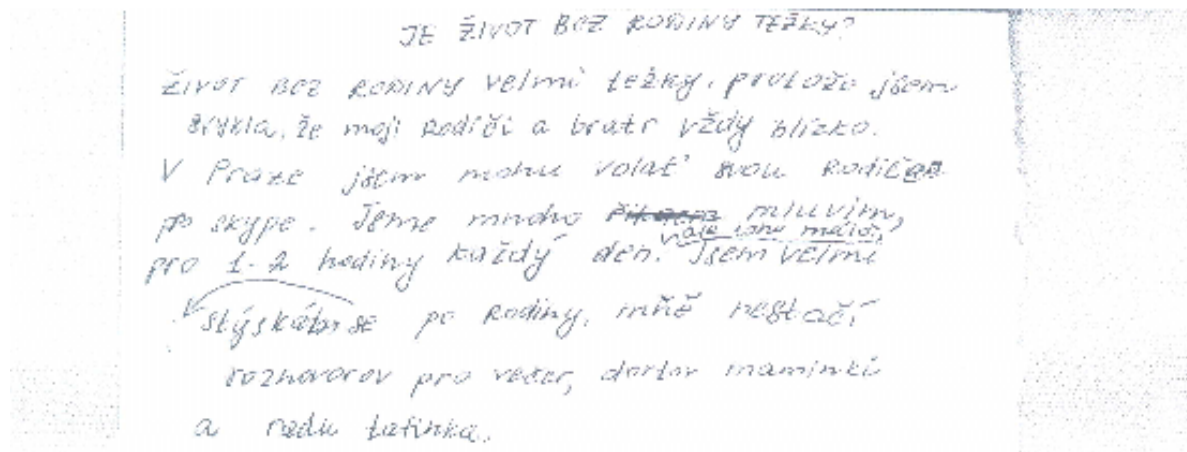 JE ŽIVOT BEZ RODINY TEŽKY?
ŽIVOT BEZ RODINY velmi težky, protože jsem
zvykla, že moji Rodiči a bratr vždy blízko.
V Praze jsem mohu volať svou Rodičam
po skype. Jsme mnoho mluvím,
ale jsme málo,
pro 1-2 hodiny každý den. Jsem velmi
stýskátse po Rodiny, mňě nestačí
rozhovorov pro večer, dortov maminki
a radu tatinka.